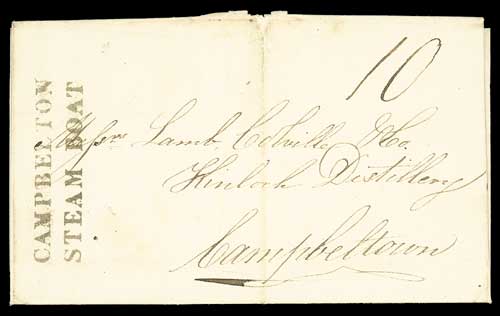 10
CAMPBELTON
STEAM BOAT
Messrs Lamb, Colville & Co.
Kinloch Distillery
Campbeltown